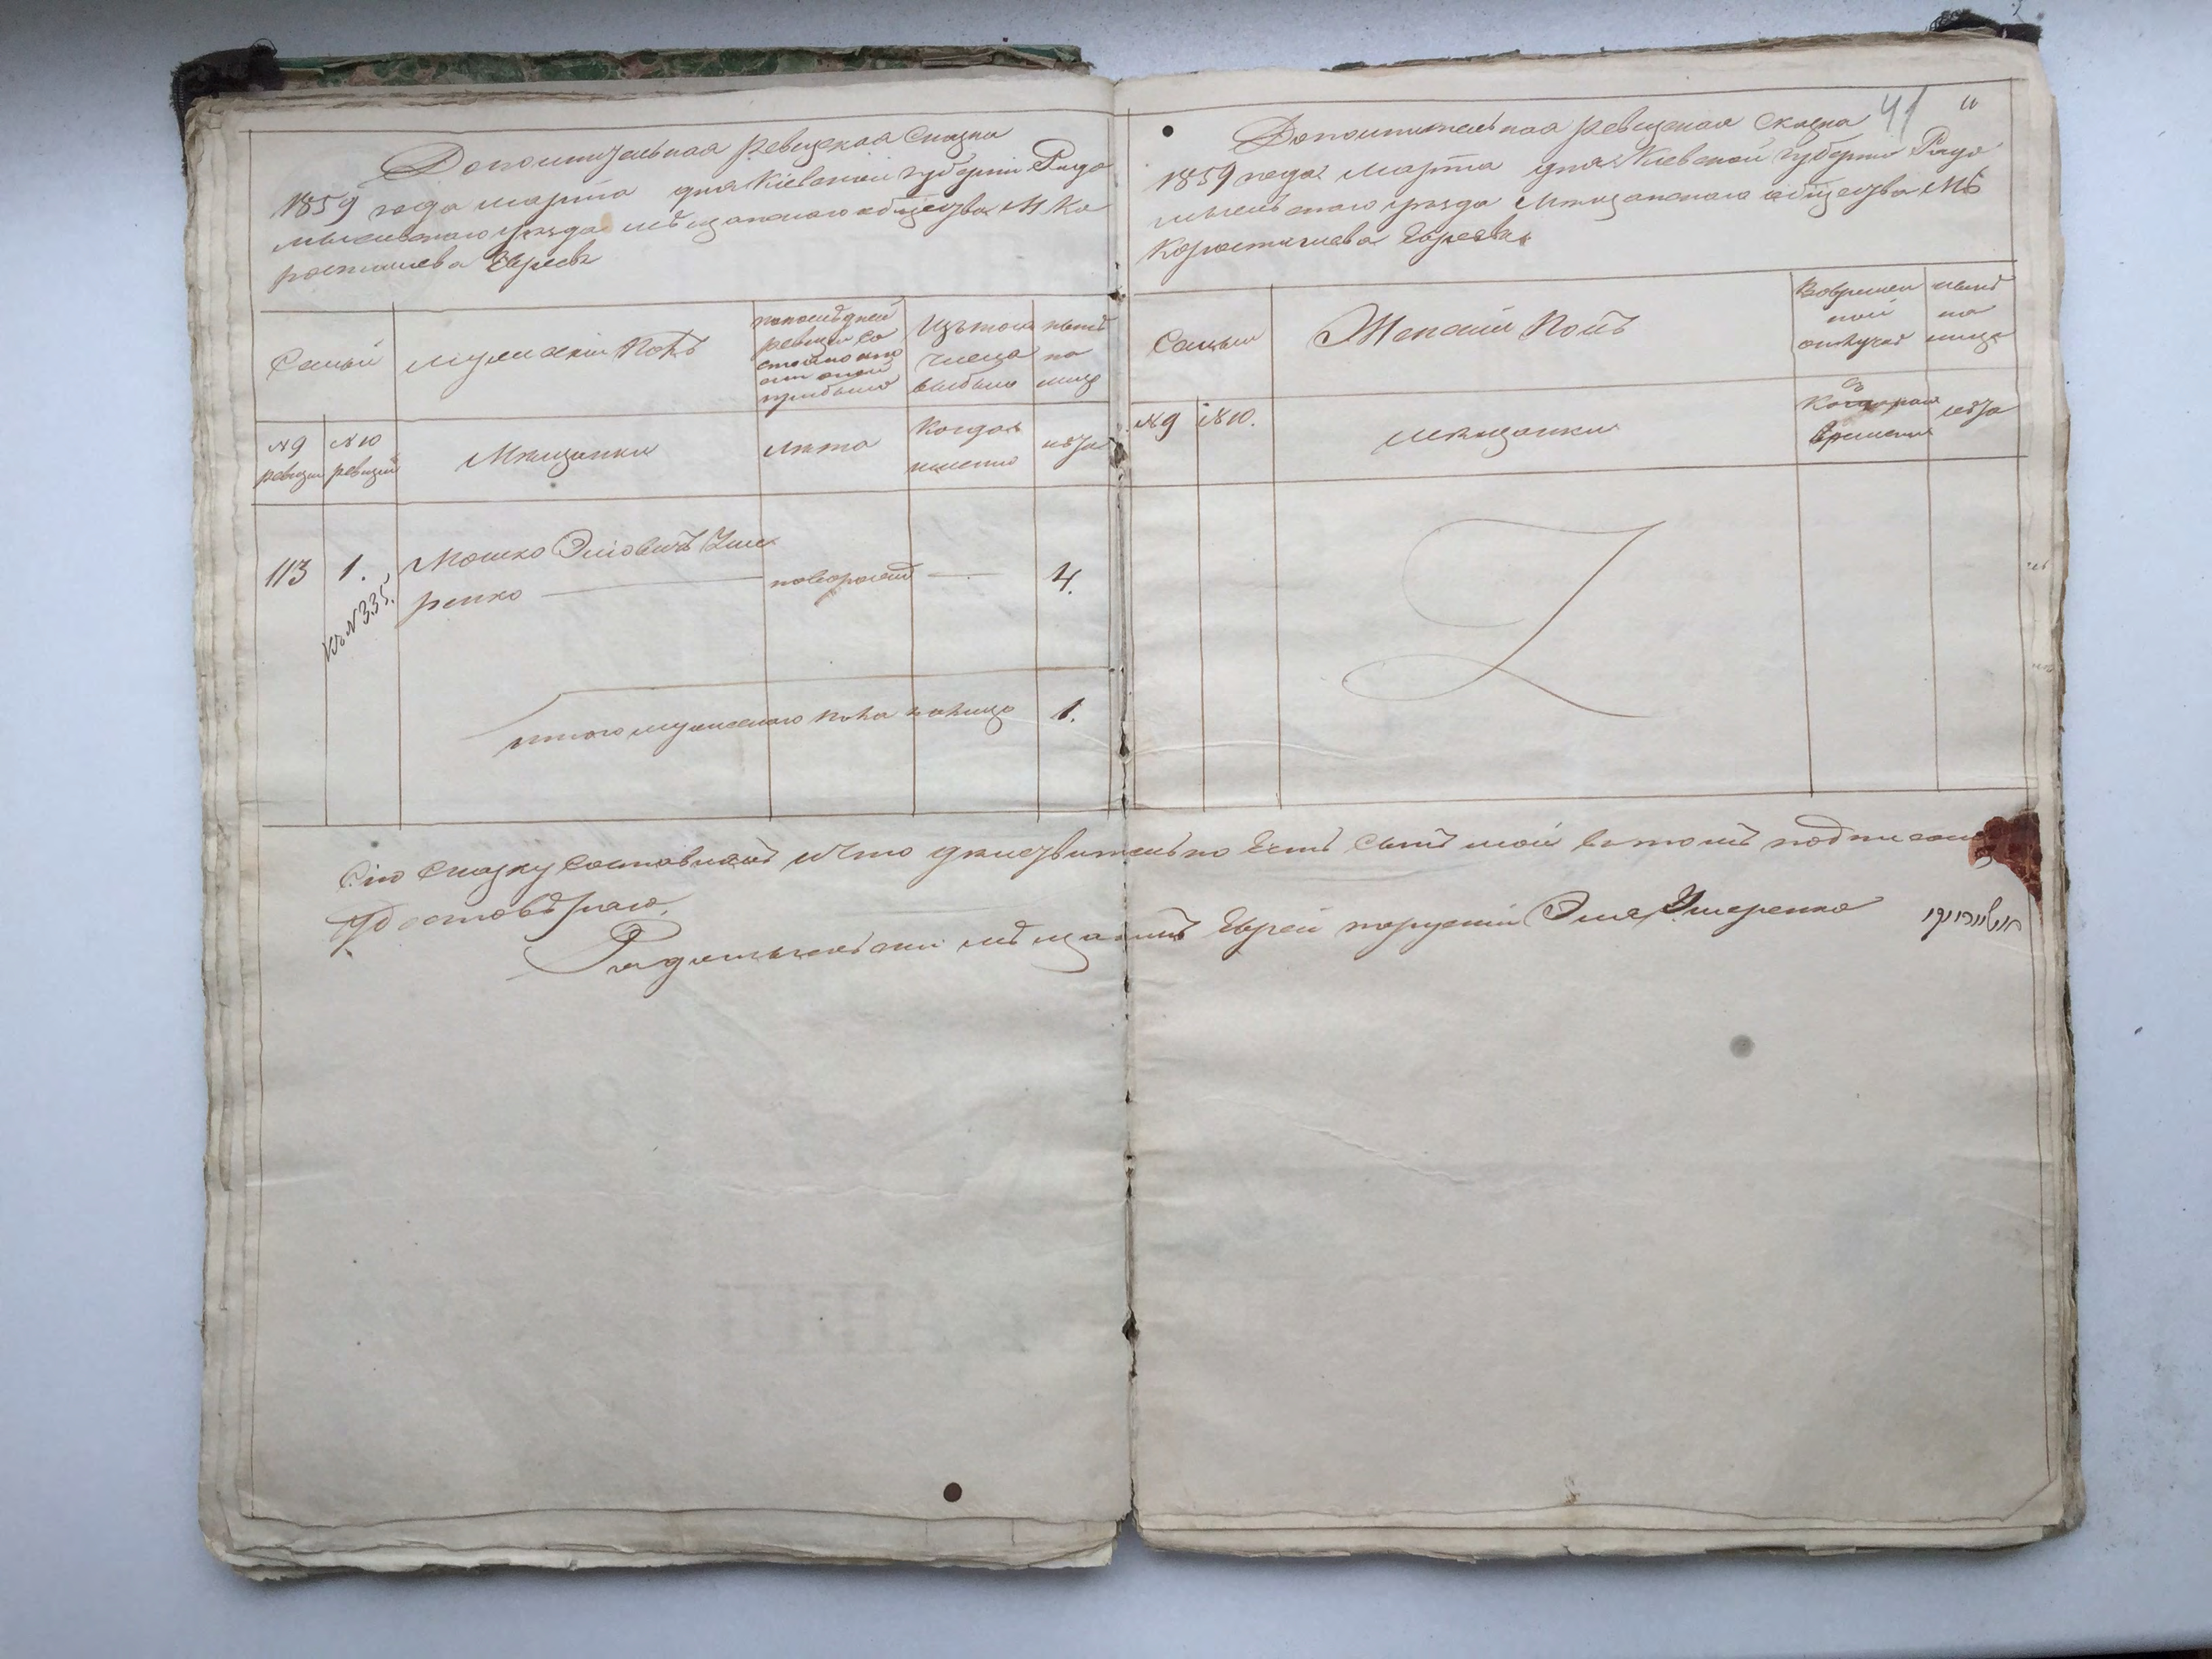 Дополнительная ревизская Сказка
1859 года марта дня Кіевской губерніи Радо
мысльскаго уѣзда мѣщанскаго общества М Ко
ростишева Евреевъ
Семьи
мужескій Полъ
по последней
ревизіи со
стояло
прибыло
Изъ того
числа
выбыло
нынѣ
на
лицо
№ 9
ревизіи
№ 10
ревизіи
Мѣщанки
Лѣта
Когда
именно
лѣта
113
1.
Къ № 335.
Мошко Эліовичъ Уше
ренко
новорожд
4.
итого мужескаго пола на лицо
1.
41
Дополнительная ревизская Сказка
1859 года Марта дня Кіевской губерніи Радо
мысльскаго уѣзда Мѣщанскаго общества М
Коростишева Евреевъ
Семьи
Женскій Полъ
Во времен
ной
отлучке
нынѣ
на
лицо
№ 9
№ 10.
Мѣщанки
съ
Котораго
времени
лѣта
Сію Сказку составилъ и что дѣйствительно Есть Сынъ мой въ томъ подписомъ
удостовѣряю.
Радомысльскій мѣщанинъ Еврей Эля Ушеренко